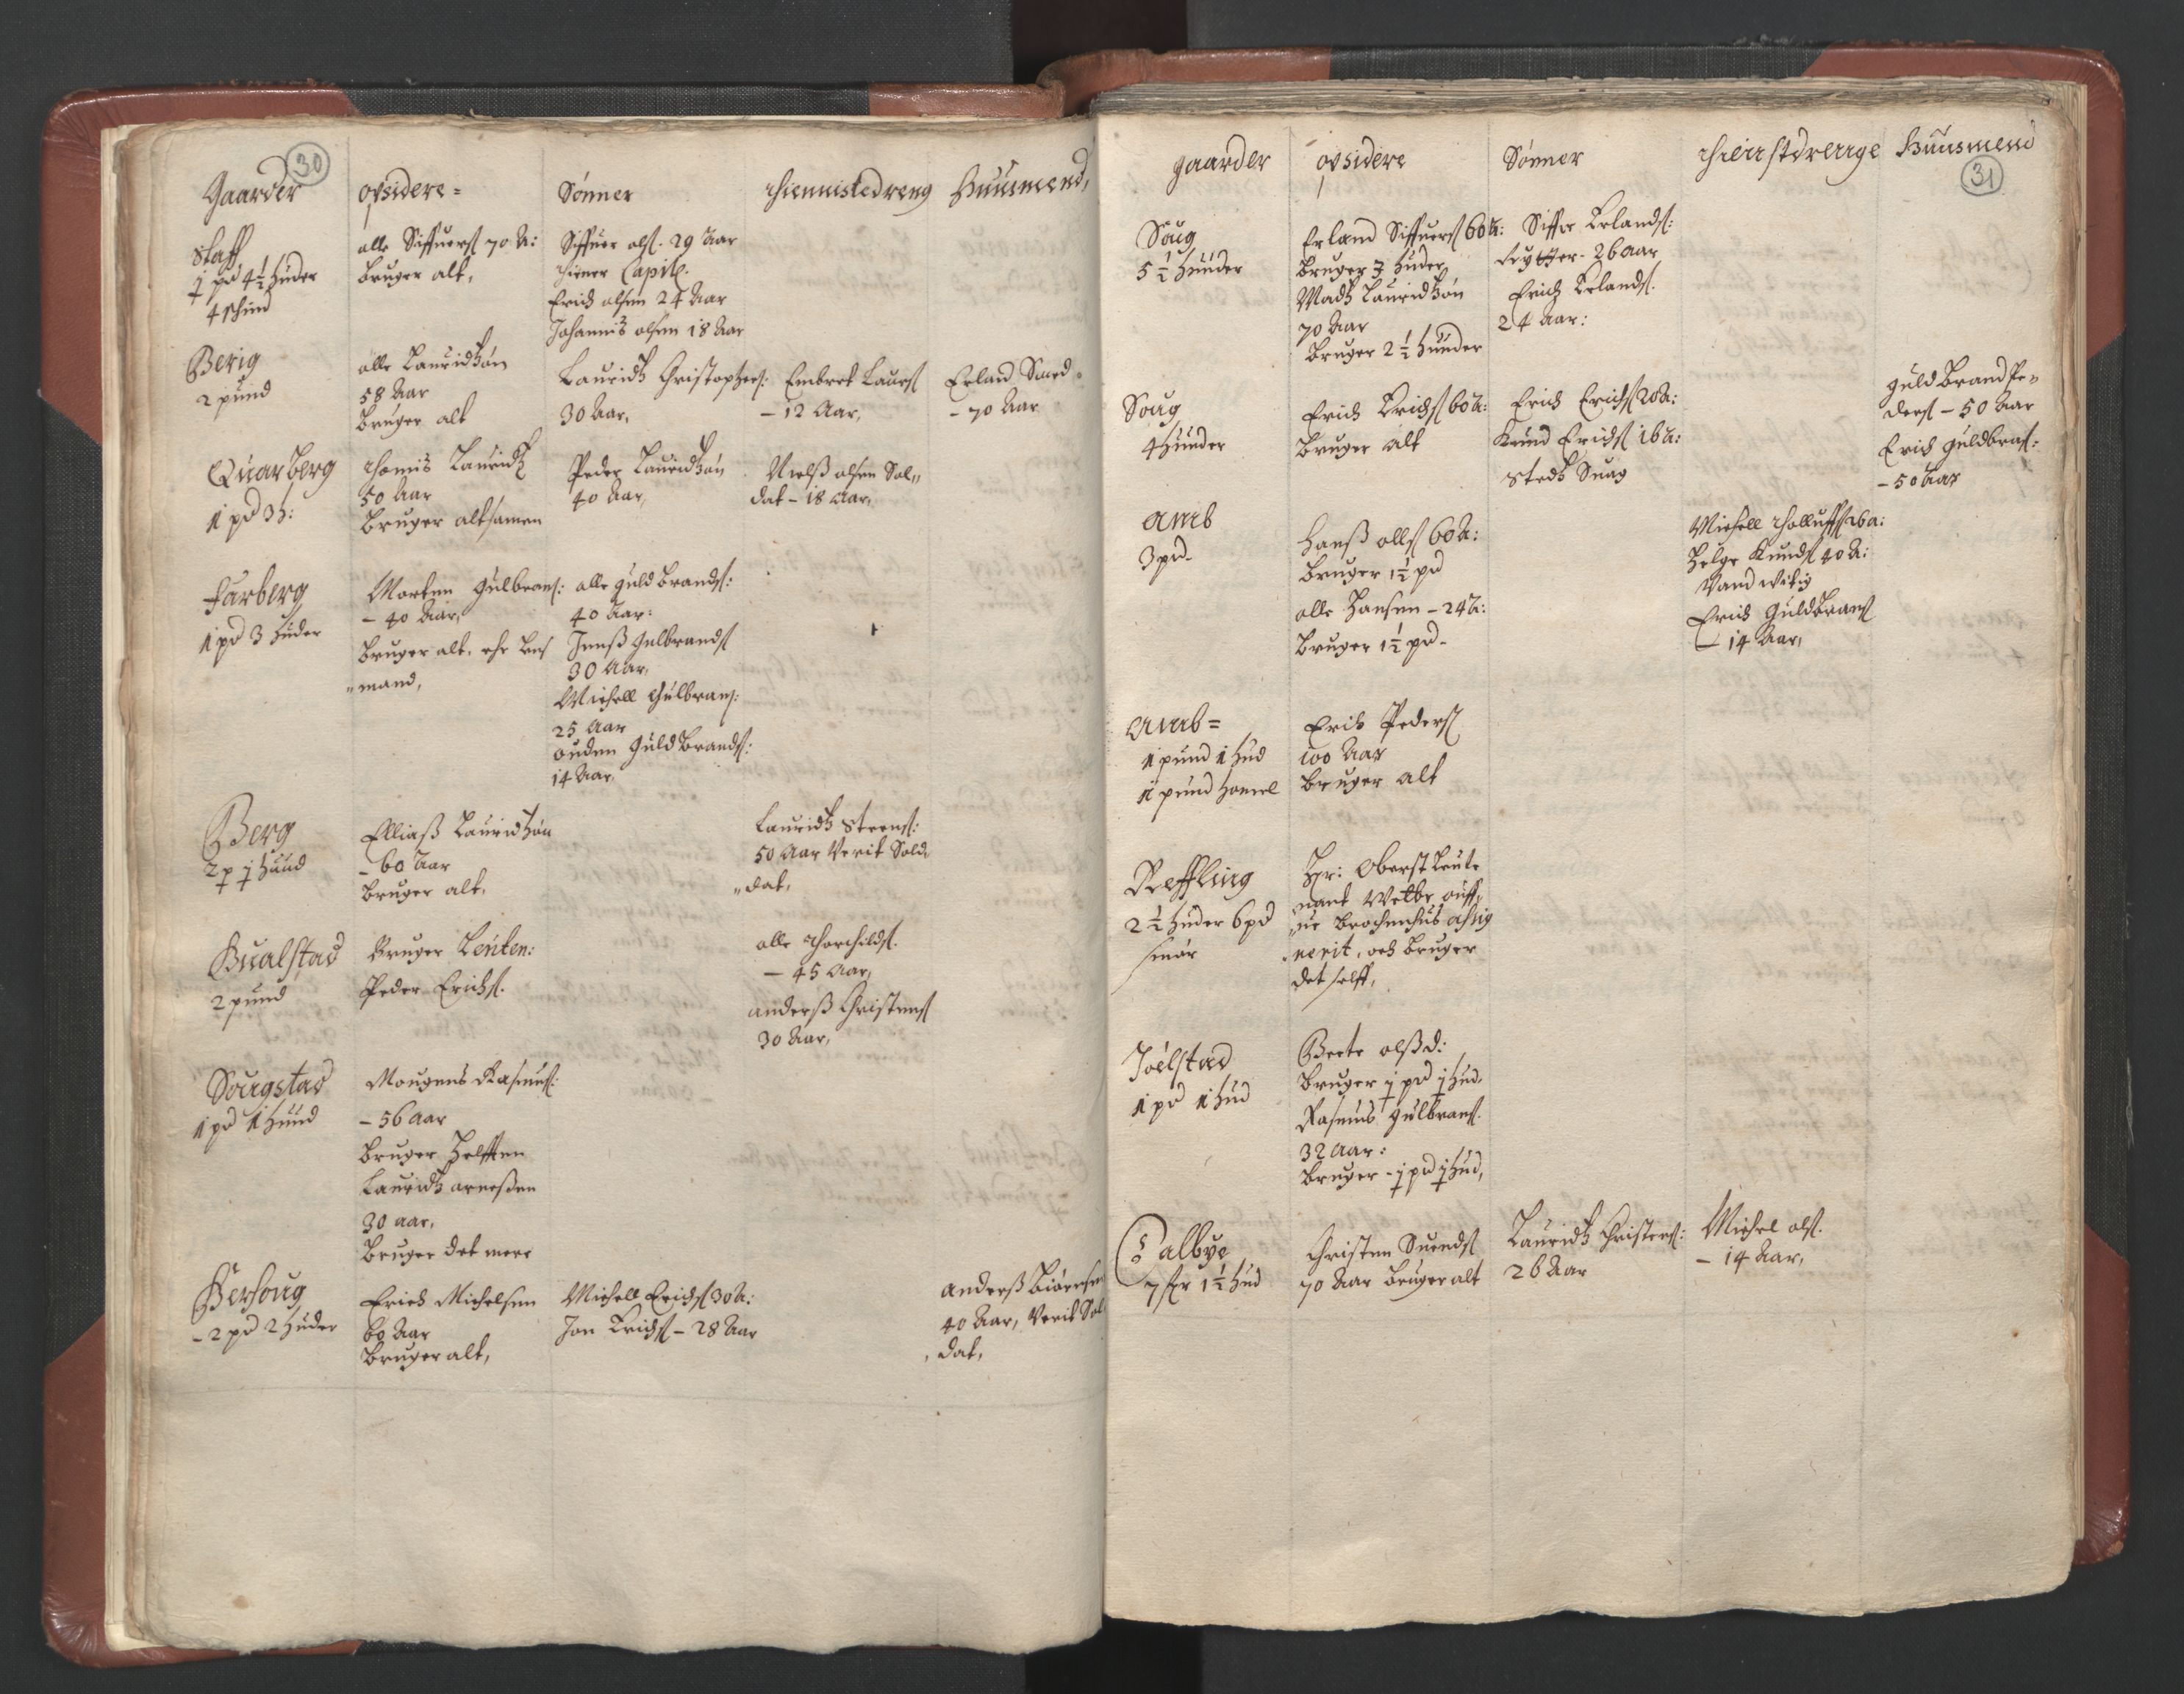 30
Gaarder
opsidere =
Sønner
Thiennistedreng
Huusmend,
Staff
1 pd 4½ Huder
4 skind
olle Siffuers 70 A:
bruger alt,
Siffuer ols. 29 Aar
thiener Capit.
Erich olsen 24 Aar
Johannis olsen 18 Aar
Berig
2 pund
olle Lauridtzøn
58 Aar
bruger alt
Lauridtz Christophers:
30 Aar,
Embret Laurs
- 12 Aar,
Erland Smed
- 70 Aar
Quarberg
1 pd 3 h:
Thomis Lauridtz
50 Aar
bruger altsamen
Peder Lauridtzøn
40 Aar,
Nielß olsen Sol„
dat - 18 Aar,
Farberg
1 pd 3 huder
Morten Gulbrans:
- 40 Aar,
bruger alt, ehr lens
„mand,
olle Guldbrands:
40 Aar:
Jenß Gulbrands
30 Aar,
Michell Gulbrans:
25 Aar
ouden Guldbrands:
14 Aar,
Berg
2 p 1 Huud
Elliaß Lauridtzøn
- 60 Aar
bruger alt,
Lauridtz Steens:
50 Aar Verit Sold
„dat,
Bualstad
2 pund
Bruger Leuten:
Peder Erichs.
olle Thorchilds.
- 45 Aar,
anderß Christens
30 Aar,
Sougstad
1 pd 1 Huud
Mougens Rasmus:
- 56 Aar
bruger Helfften
Lauridtz arneßen
30 aar,
bruger det mere
Bersoug
- 2 pd 2 Huder
Erich Michelsen
60 Aar
bruger alt,
Michell Erichs 30 A:
Jon Erichs - 28 Aar
anderß Biørnsen
40 Aar, Verit Sol
„dat,
31
gaarder
opsidere
Sønner
Thienstdrenge
Huusmend
Soug
5½ Huuder
Erland Siffuers 60 A:
bruger 3 huder
Madtz Lauridtzøn
70 Aar
bruger 2½ Huuder
Siffer Erlands:
Rytter - 26 Aar
Erich Erlands.
24 Aar:
Soug
4 Huuder
Erich Erichs 60 A:
bruger alt
Erich Erichs 20 A:
Knud Erichs 16 A:
stedtz Suag
guldbrand Pe„
ders - 50 Aar
Erich guldbras:
- 50 Aar
amb
3 pd -
Hanß olls 60 A:
bruger 1½ pd
olle Hansen - 24 A:
bruger 1½ pd -
Michell Tholluffs 26 a:
Helge Knuds 40 A:
Vand witig
Erich Guldbrans
- 14 Aar,
amb =
1 pund 1 Hud
1 pund
Erich Peders
100 Aar
bruger alt
Reffling
2½ Huder 6 pd
smør
Hr: Oberst Leute
nant
„ue Brochenhus assig
nerit, och bruger
det selff,
Jöelstad
1 pd 1 Hud
Berte olßd:
bruger 1 pd 1 Hud,
Rasmus Gulbrans.
32 Aar:
bruger - 1 pd 1 Hud,
Calbye
7 1½ Hud
Christen Suends
70 Aar bruger alt
Lauridtz Christens:
26 Aar
Michel ols.
- 14 Aar,